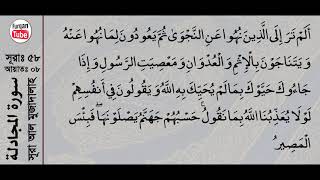 Furqan
Tube
সূরাঃ ৫৮
আয়াতঃ ০৮
سورة المجادلة
সূরা আল মুজাদালাহ
أَلَمْ تَرَ إِلَى الَّذِينَ نُهُوا عَنِ النَّجْوَىٰ ثُمَّ يَعُودُونَ لِمَا نُهُوا عَنْهُ
وَيَتَنَاجَوْنَ بِالْإِثْمِ وَالْعُدْوَانِ وَمَعْصِيَتِ الرَّسُولِ وَإِذَا
جَاءُوكَ حَيَّوْكَ بِمَا لَمْ يُحَيِّكَ بِهِ اللَّهُ وَيَقُولُونَ فِي أَنْفُسِهِمْ
لَوْلَا يُعَذِّبُنَا اللَّهُ بِمَا نَقُولُ ۚ حَسْبُهُمْ جَهَنَّمُ يَصْلَوْنَهَا ۖ فَبِئْسَ
الْمَصِيرُ